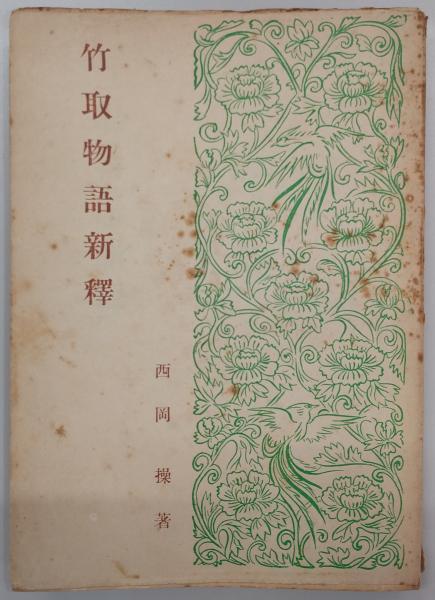 竹取物語新釋
西岡操著